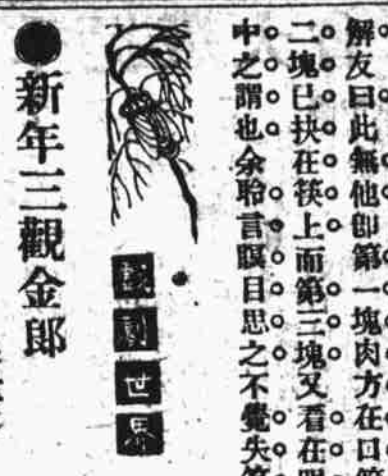 解友曰此無他卽第一塊肉方在口
二塊已抉在筷上而第三塊又看在
中之謂也余聆言瞑目思之不覺失
劇世界
●新年三觀金郎